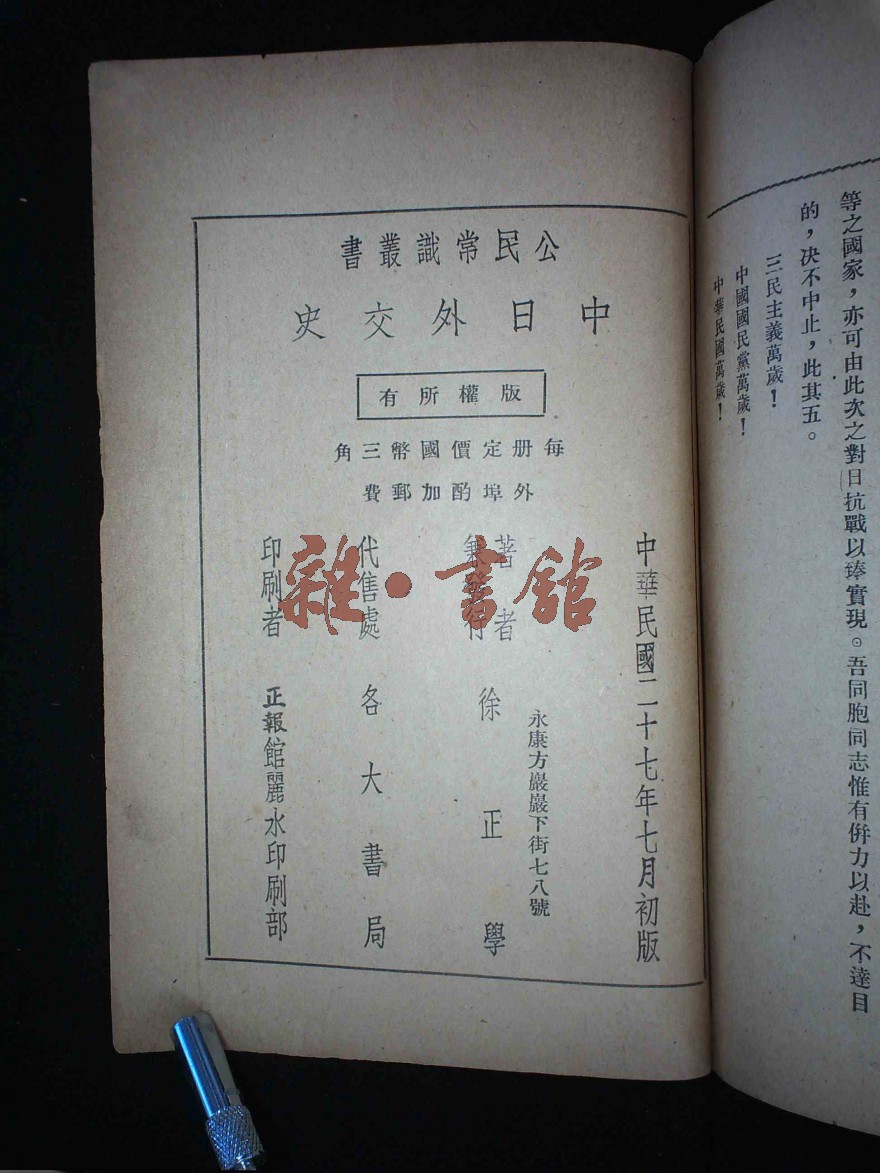 等之國家，亦可由此次之對日抗戰以臻實現。吾同胞同志惟有併力以赴，不達目
的，決不中止，此其五。
三民主義萬歲！
中國國民黨萬歲！
中華民國萬歲！
公民常識叢書
中日外交史
版權所有
每册定價國幣三角
外埠酌加郵費
中華民國二十七年七月初版
永康方巖巖下街七八號
著者
兼發行 徐正學
代售處 各大書局
印刷者 正報館麗水印刷部
雜·書館